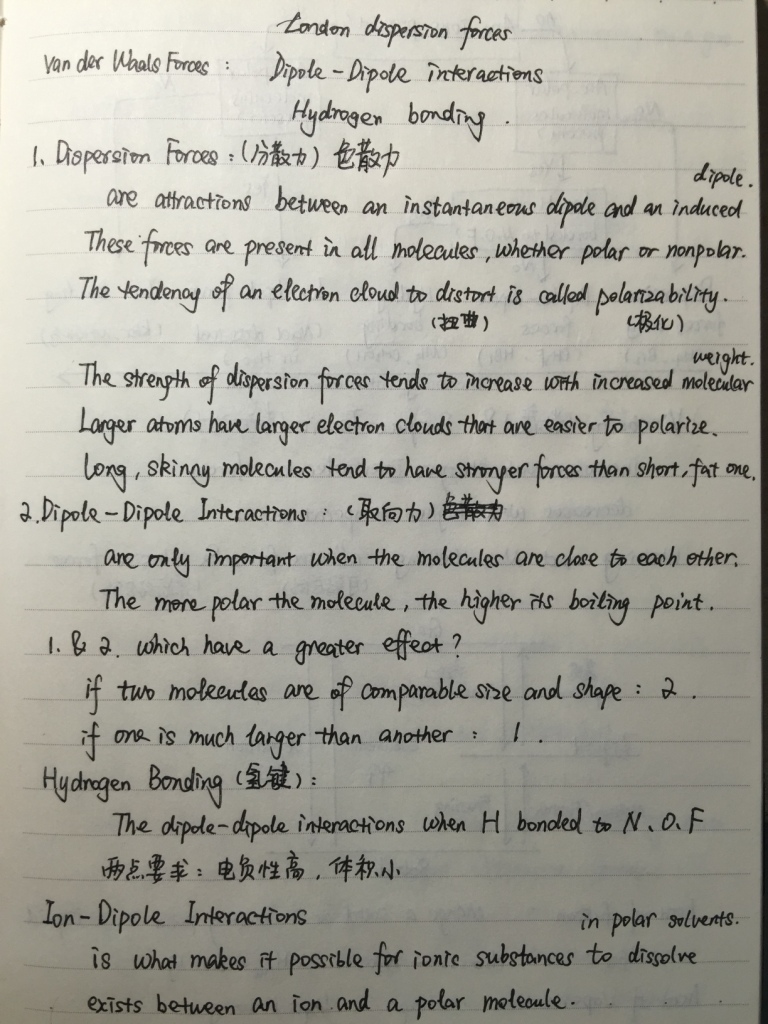 London dispersion forces
Van der Waals Forces : Dipole-Dipole interactions
Hydrogen bonding .
1. Dispersion Forces : (分散力) 色散力
are attractions between an instantaneous dipole and an induced dipole.
These forces are present in all molecules, whether polar or nonpolar.
The tendency of an electron cloud to distort is called polarizability.
(扭曲) (极化)
The strength of dispersion forces tends to increase with increased molecular weight.
Larger atoms have larger electron clouds that are easier to polarize.
Long, skinny molecules tend to have stronger forces than short, fat one.
2. Dipole-Dipole Interactions : (取向力) 色散力
are only important when the molecules are close to each other.
The more polar the molecule, the higher its boiling point.
1. & 2. which have a greater effect ?
if two molecules are of comparable size and shape : 2 .
if one is much larger than another : 1 .
Hydrogen Bonding (氢键) :
The dipole-dipole interactions when H bonded to N、O、F
两点要求 : 电负性高 , 体积小
Ion-Dipole Interactions
is what makes it possible for ionic substances to dissolve in polar solvents.
exists between an ion and a polar molecule.